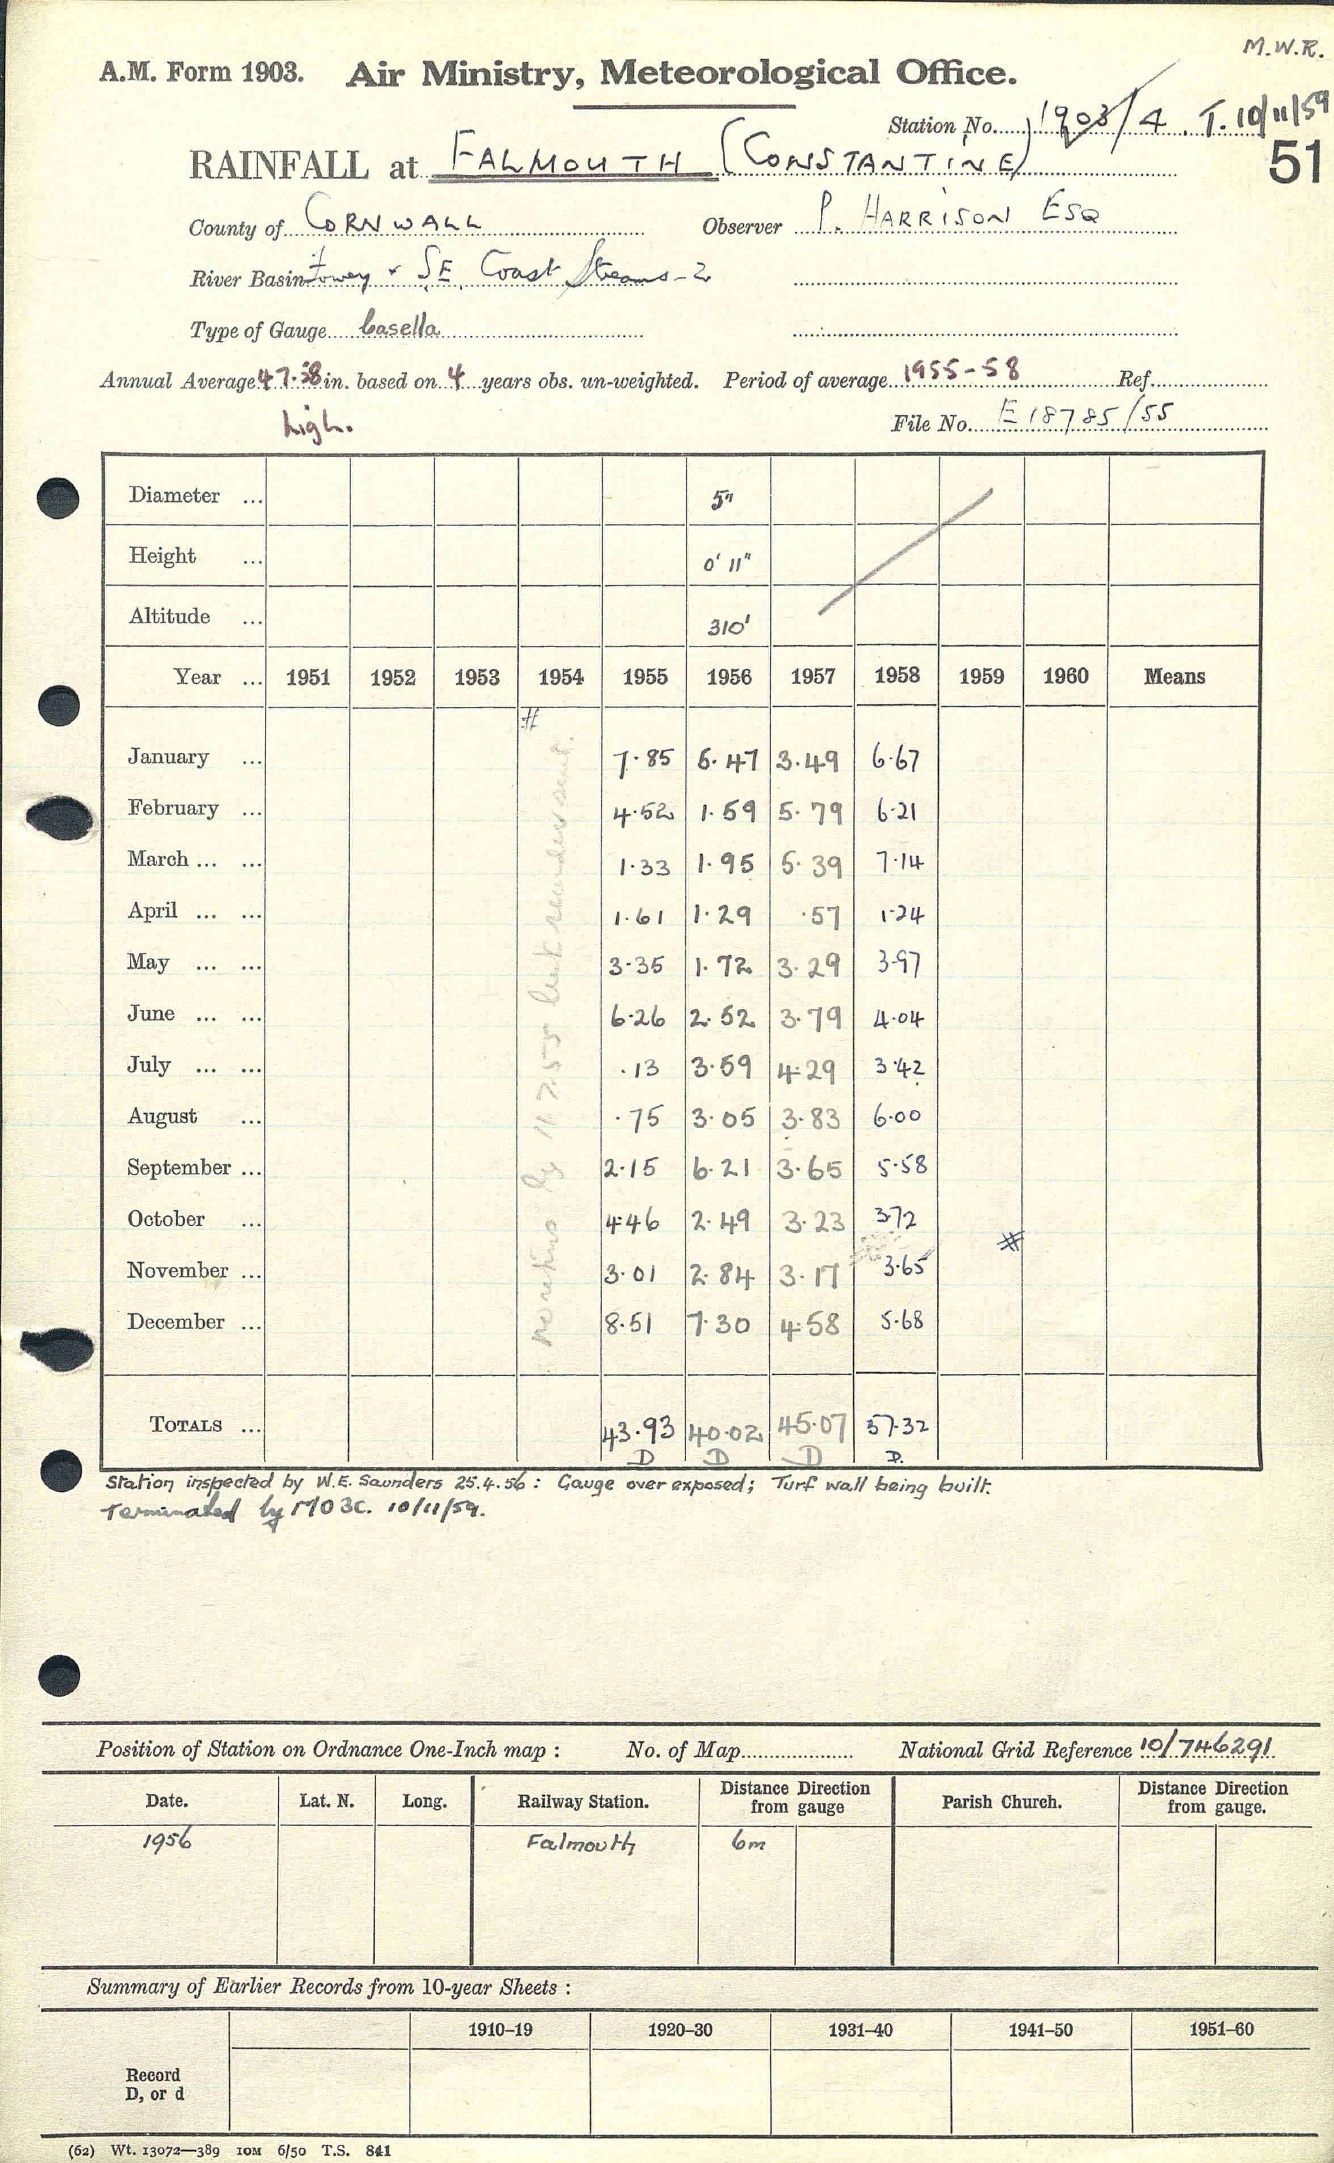 M.W.R.
A.M. Form 1903. Air Ministry, Meteorological Office.
Station No. 1903/4. T. 10/11/59
51
RAINFALL at FALMOUTH (CONSTANTINE)
County of CORNWALL Observer P. HARRISON ESQ
River Basin Fowey & S.E. Coast Streams-2
Type of Gauge Casella
Annual Average 47.58 in. based on 4 years obs. un-weighted. Period of average 1955-58 Ref.
high. File No. E 18785/55
Diameter ... 5"
Height ... 0' 11"
Altitude ... 310'
Year ... 1951 1952 1953 1954 1955 1956 1957 1958 1959 1960 Means
#
January ... 7.85 6.47 3.49 6.67
February ... 4.52 1.59 5.79 6.21
March ... ... 1.33 1.95 5.39 7.14
April ... ... 1.61 1.29 .57 1.24
May ... ... 3.35 1.72 3.29 3.97
June ... ... 6.26 2.52 3.79 4.04
July ... ... .13 3.59 4.29 3.42
August ... .75 3.05 3.83 6.00
September ... 2.15 6.21 3.65 5.58
October ... 4.46 2.49 3.23 3.72
#
November ... 3.01 2.84 3.17 3.65
December ... 8.51 7.30 4.58 5.68
TOTALS ... 43.93 40.02 45.07 57.32
D D D D.
no returns by 11.7.55 but reminder sent.
Station inspected by W.E. Saunders 25.4.56: Gauge over exposed; Turf wall being built.
Terminated by MO3C. 10/11/59.
Position of Station on Ordnance One-Inch map : No. of Map National Grid Reference 10/746291
Date. Lat. N. Long. Railway Station. Distance Direction from gauge Parish Church. Distance Direction from gauge.
1956 Falmouth 6m
Summary of Earlier Records from 10-year Sheets :
1910–19 1920–30 1931–40 1941–50 1951–60
Record
D, or d
(62) Wt. 13072—389 10M 6/50 T.S. 841